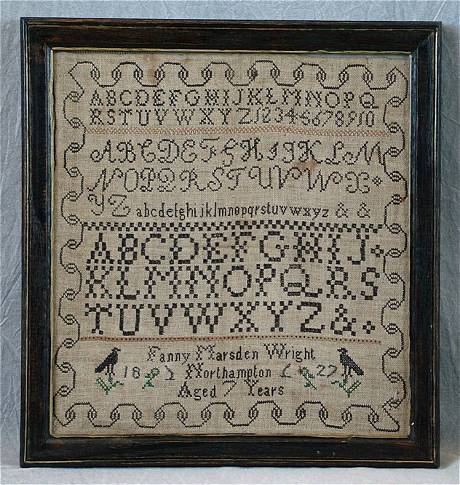 ABCDEFGHIJKLMNOPQ
RSTUVWXYZ12345678910
ABCDEFGHIJKLM
NOPQRSTUVWX
YZ abcdefghijklmnopqrstuvwxyz & &
ABCDEFGHIJ
KLMNOPQRS
TUVWXYZ&
Fanny Marsden Wright
18 Northampton 27
Aged 7 Years